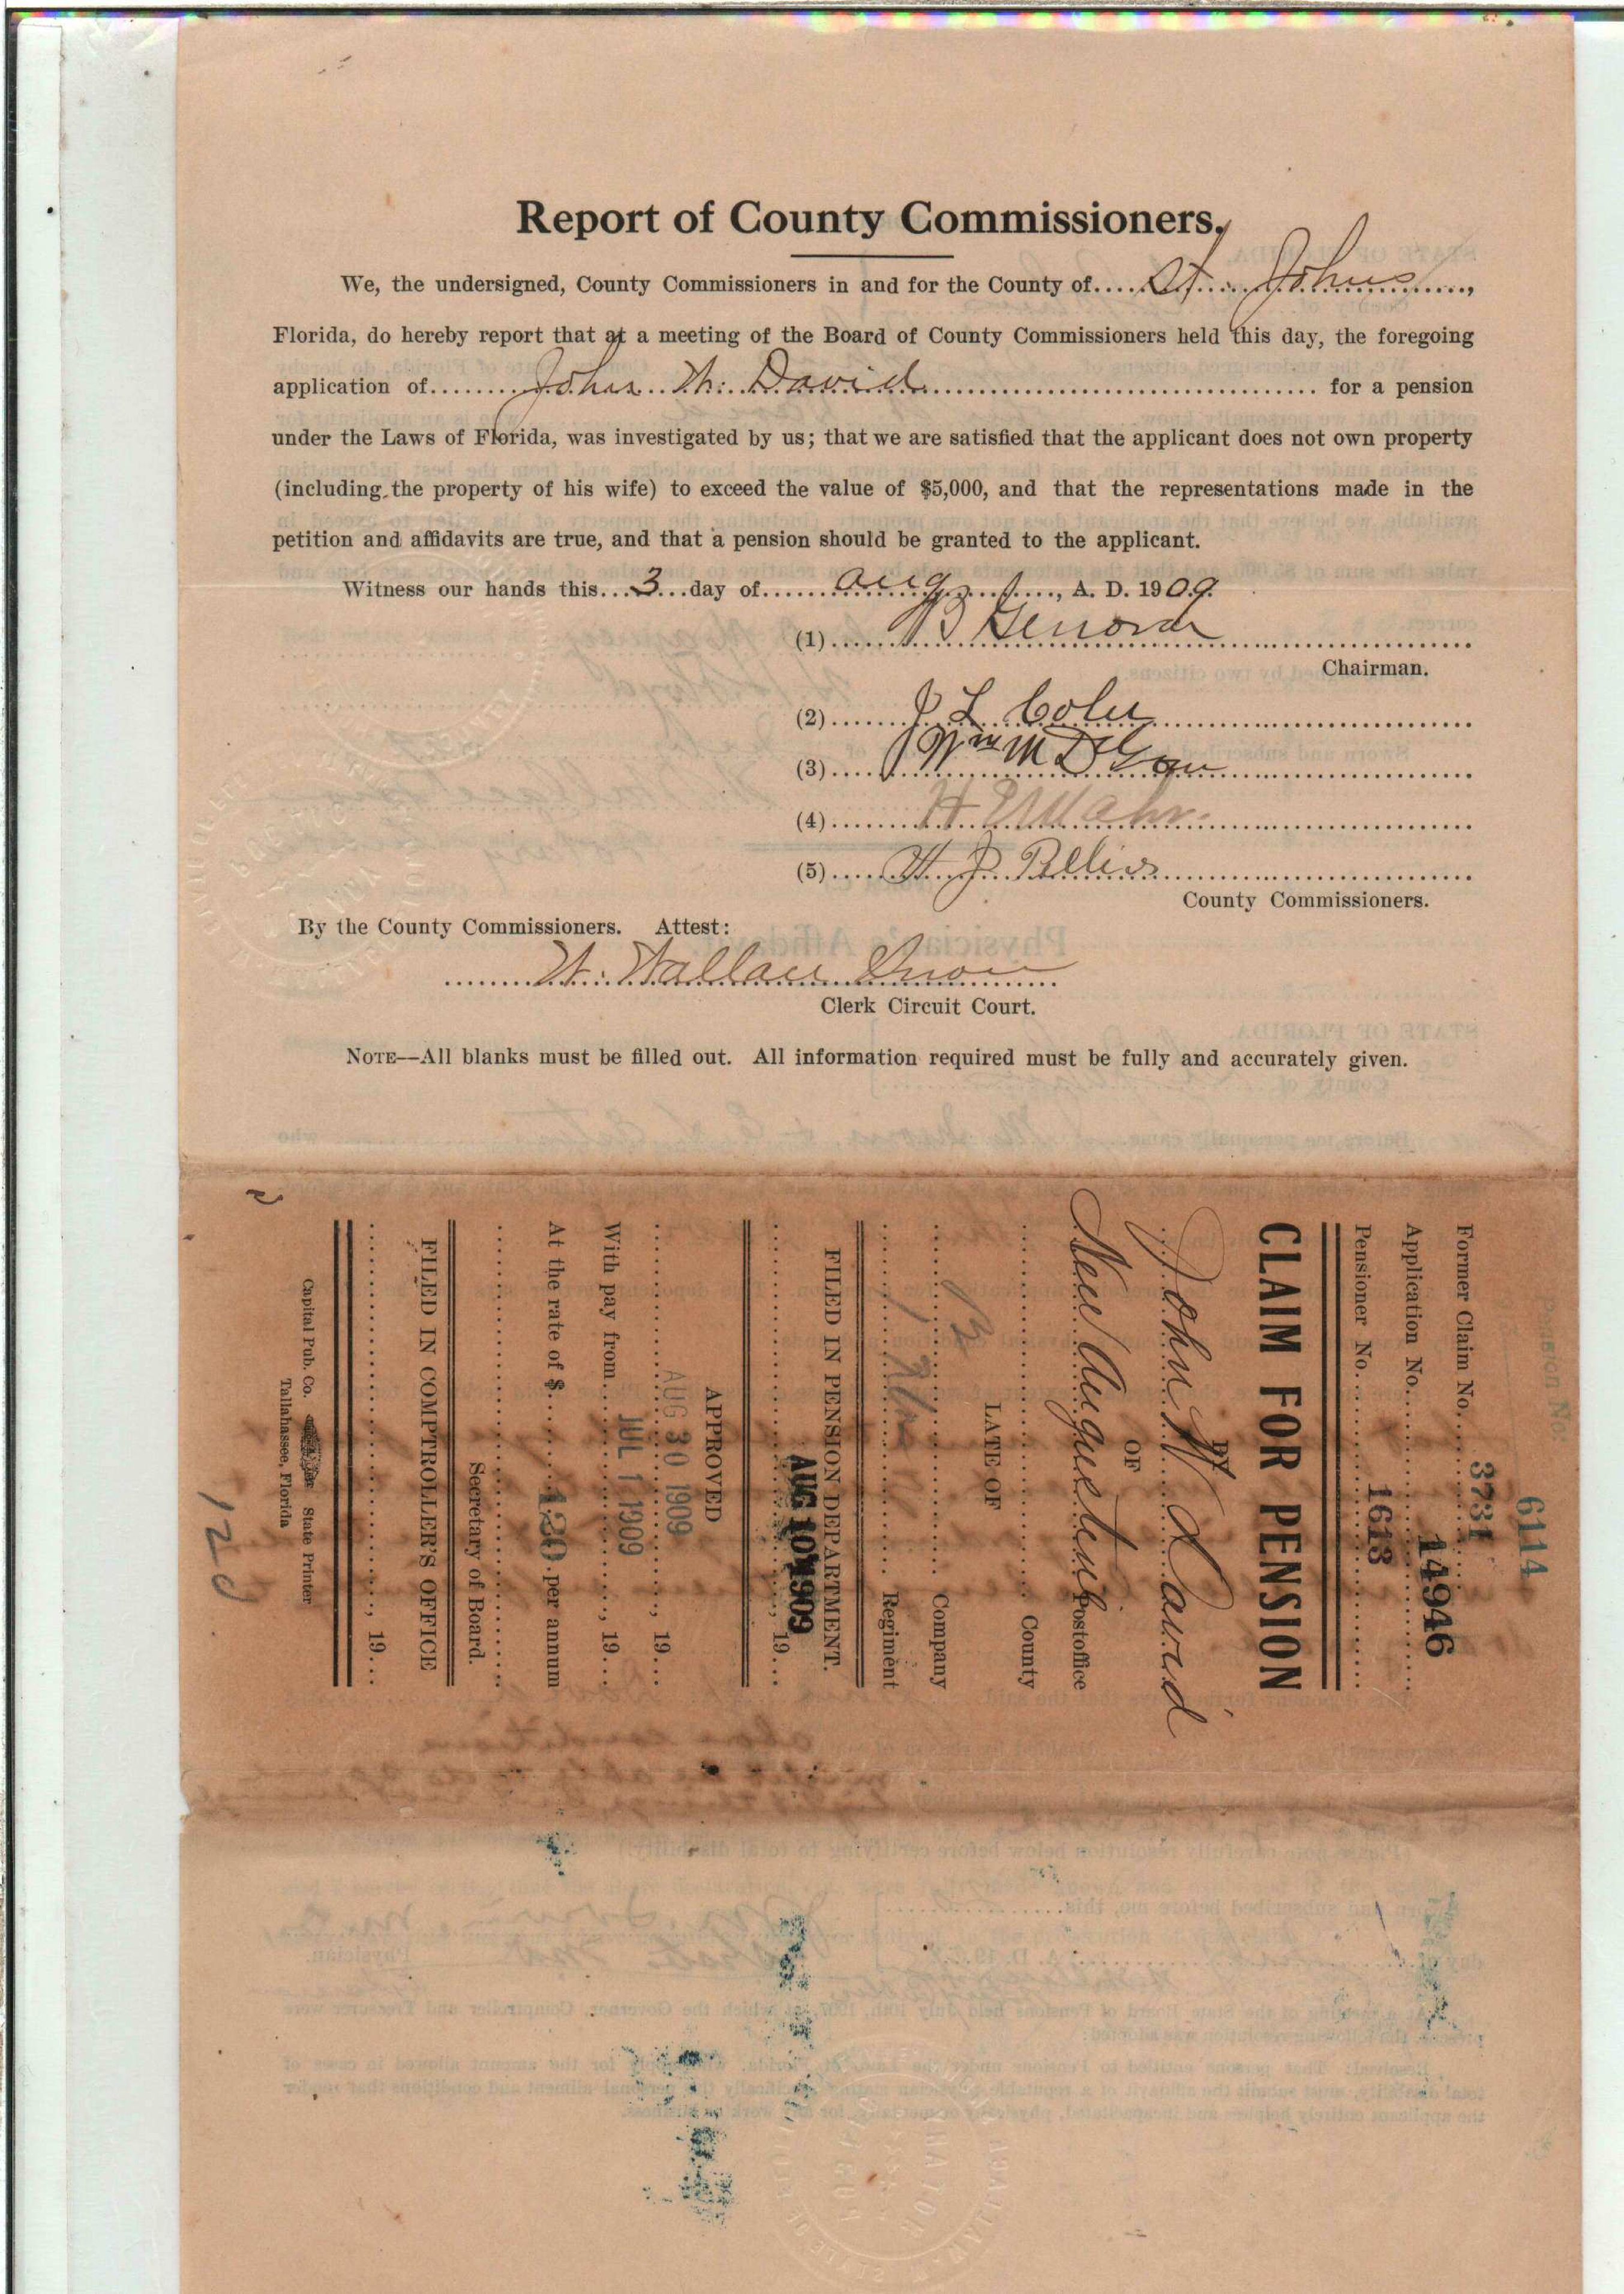 Report of County Commissioners.
We, the undersigned, County Commissioners in and for the County of St. Johns,
Florida, do hereby report that at a meeting of the Board of County Commissioners held this day, the foregoing
application of John W. David for a pension
under the Laws of Florida, was investigated by us; that we are satisfied that the applicant does not own property
(including the property of his wife) to exceed the value of $5,000, and that the representations made in the
petition and affidavits are true, and that a pension should be granted to the applicant.
Witness our hands this 3 day of August, A. D. 1909.
(1) B Genovar
Chairman.
(2)
(3) Wm
(4)
(5)
County Commissioners.
By the County Commissioners. Attest:
Wallace Snow
Clerk Circuit Court.
NOTE—All blanks must be filled out. All information required must be fully and accurately given.
6114
Pension No.
Former Claim No. 3731
Application No. 14946
Pensioner No. 1613
CLAIM FOR PENSION
BY
John W David
OF
New Augustine Postoffice
County
LATE OF
Company
Regiment
FILED IN PENSION DEPARTMENT.
AUG 10 1909, 19
APPROVED
AUG 30 1909, 19
With pay from JUL 1 1909, 19
At the rate of $ 120 per annum
Secretary of Board.
FILED IN COMPTROLLER'S OFFICE
, 19
Capital Pub. Co. State Printer
Tallahassee, Florida
120